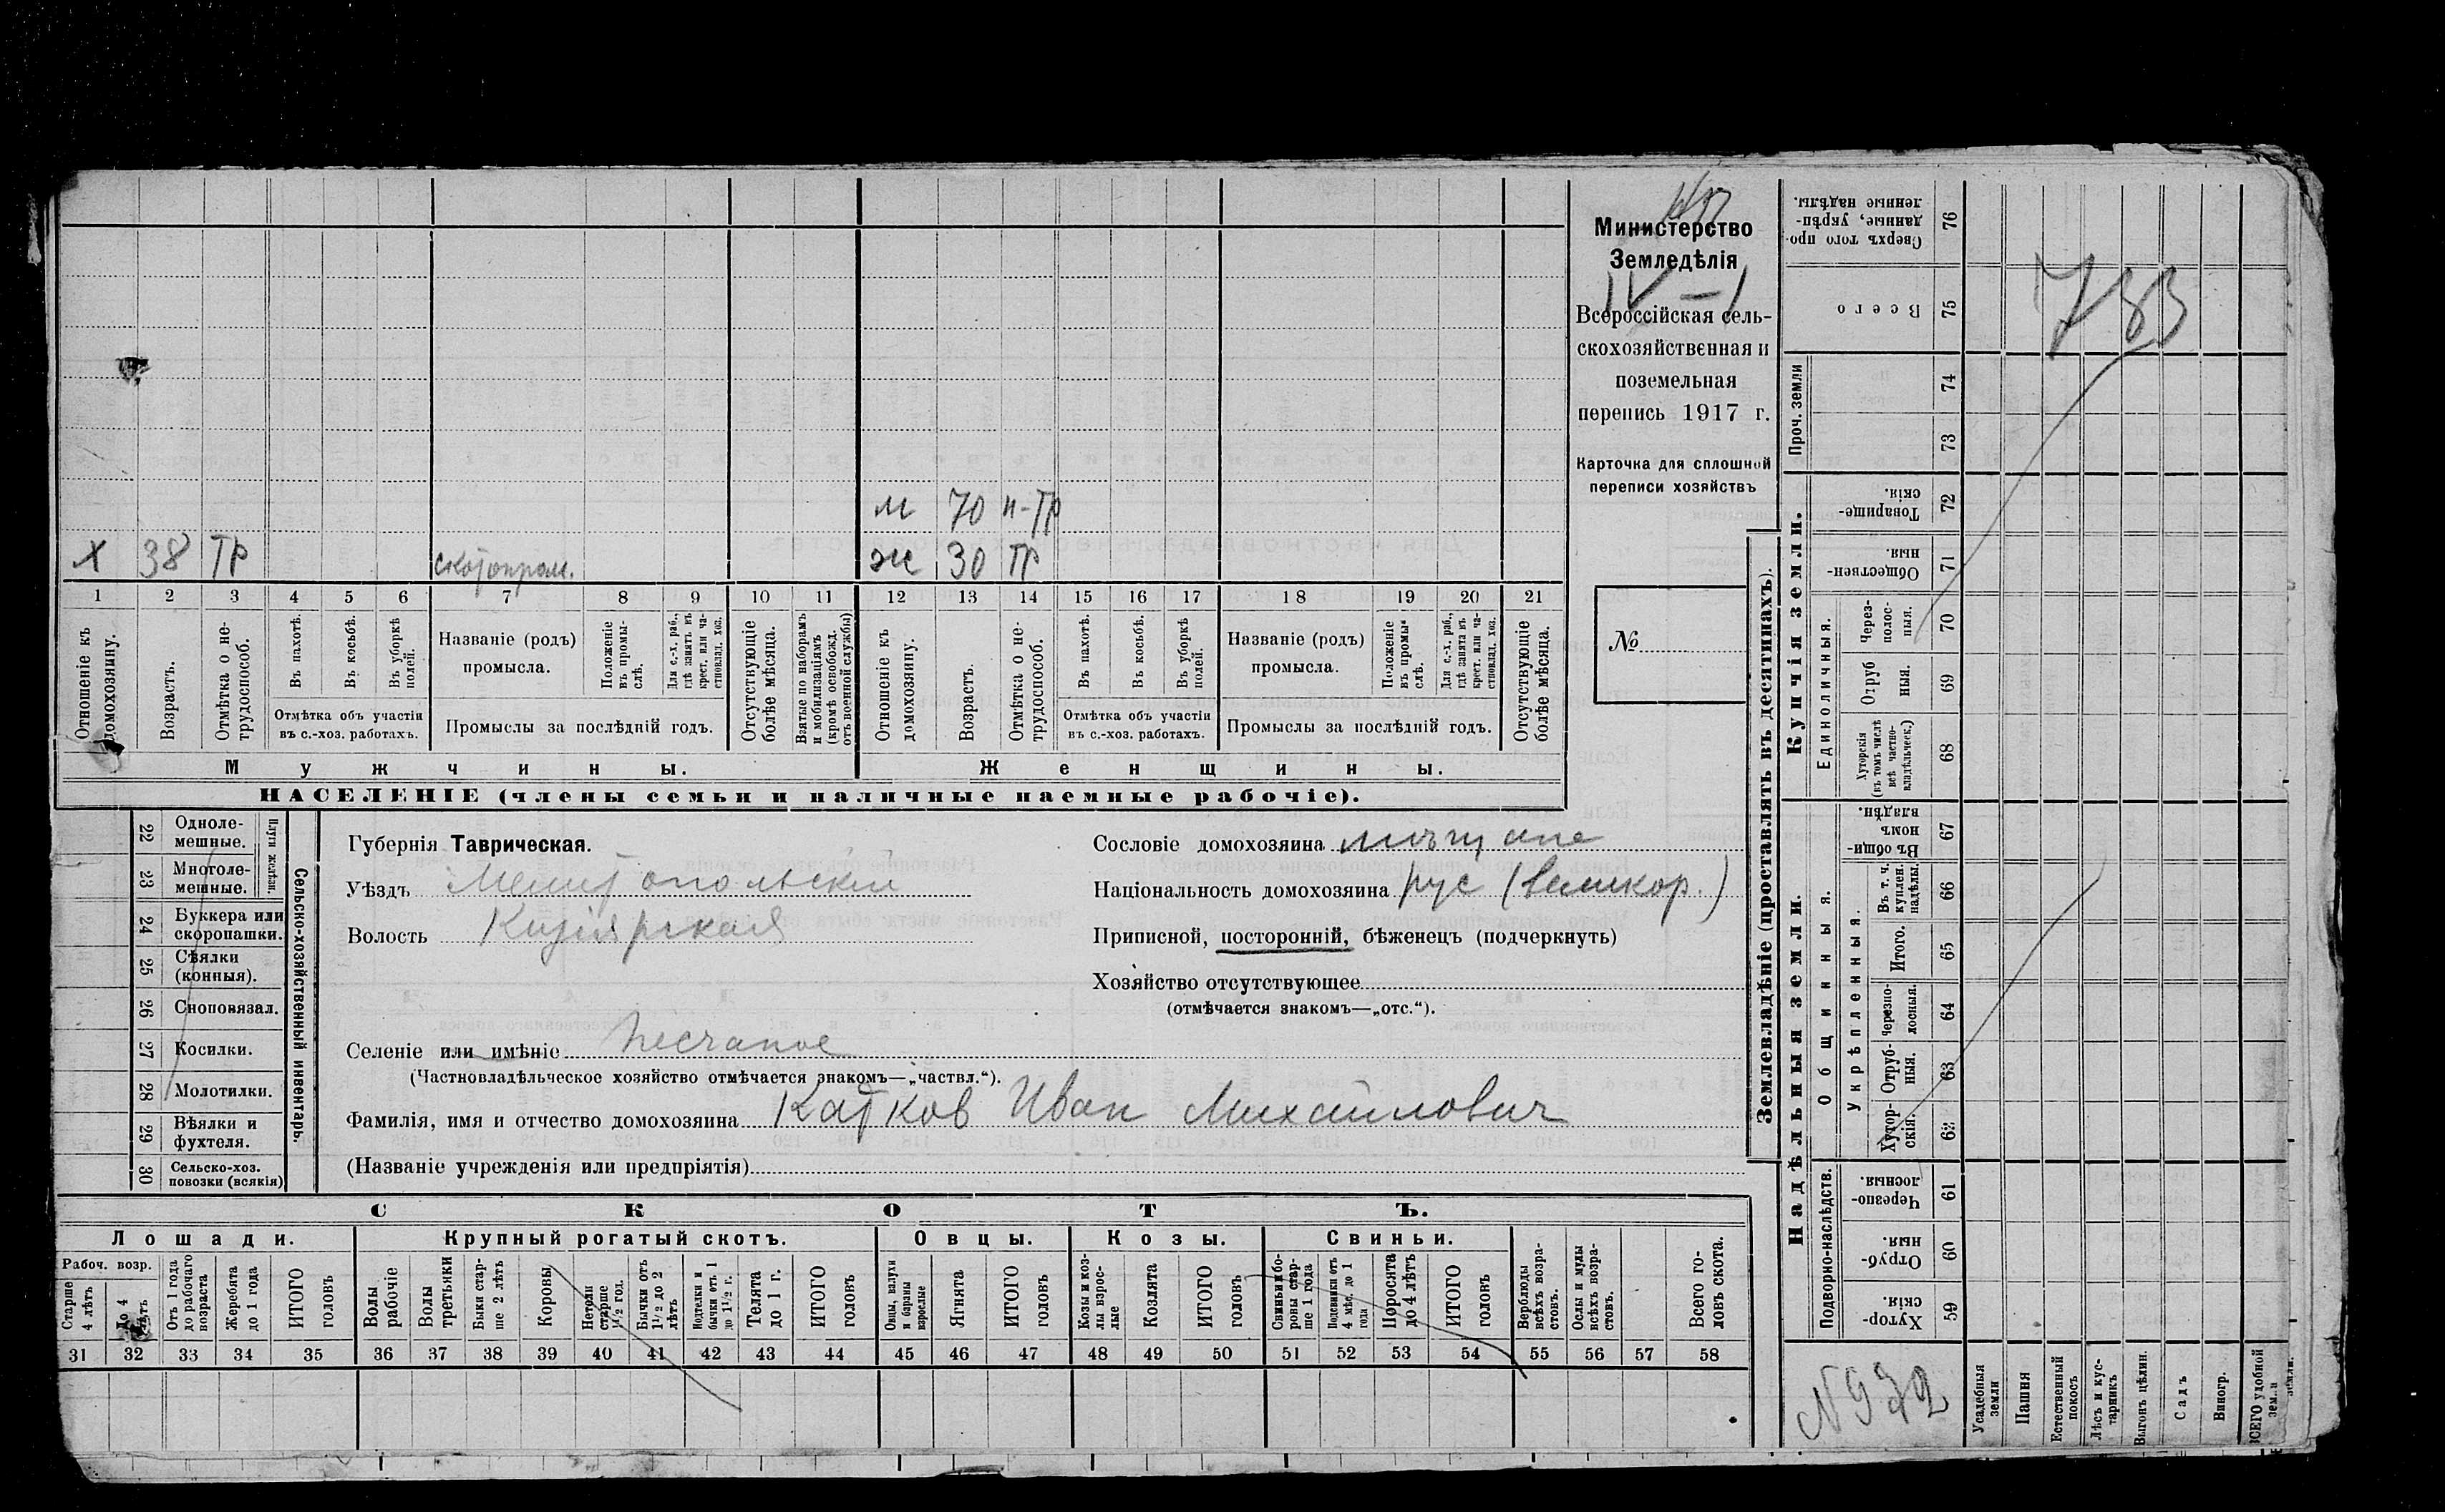 Министерство
Земледѣлія
IV – 1
Всероссійская сель-
скохозяйственная и
поземельная
перепись 1917 г.
Карточка для сплошной
переписи хозяйствъ
№
м 70 н-тр
х 38 тр скотопром. ж 30 тр
1 2 3 4 5 6 7 8 9 10 11 12 13 14 15 16 17 18 19 20 21
Отношеніе къ домохозяину.
Возрастъ.
Отмѣтка о не-трудоспособ.
Въ пахотѣ.
Въ косьбѣ.
Въ уборкѣ полей.
Отмѣтка объ участіи
въ с.-хоз. работахъ.
Названіе (родъ)
промысла.
Положеніе въ промы-слѣ.
Для с.-х. раб., гдѣ занятъ въ крест. или ча-стновлад. хоз.
Промыслы за послѣдній годъ.
Отсутствующіе болѣе мѣсяца.
Взятые по наборамъ и мобилизаціямъ (кромѣ освобожд. отъ военной службы)
Отношеніе къ домохозяину.
Возрастъ.
Отмѣтка о не-трудоспособ.
Въ пахотѣ.
Въ косьбѣ.
Въ уборкѣ полей.
Отмѣтка объ участіи
въ с.-хоз. работахъ.
Названіе (родъ)
промысла.
Положеніе въ промы-слѣ.
Для с.-х. раб., гдѣ занята въ крест. или ча-стновлад. хоз.
Промыслы за послѣдній годъ.
Отсутствующіе болѣе мѣсяца.
Мужчины. Женщины.
НАСЕЛЕНІЕ (члены семьи и наличные наемные рабочіе).
22 Одноле-мешные.
23 Многоле-мешные.
Плуги желѣзн.
24 Буккера или скоропашки.
25 Сѣялки (конныя).
26 Сноповязал.
27 Косилки.
28 Молотилки.
29 Вѣялки и фухтеля.
30 Сельско-хоз. повозки (всякія)
Сельско-хозяйственный инвентарь.
Губернія Таврическая.
Уѣздъ Мелитопольскій
Волость Кизіярская
Сословіе домохозяина мѣщане
Національность домохозяина рус (великор.)
Приписной, посторонній, бѣженецъ (подчеркнуть)
Хозяйство отсутствующее
(отмѣчается знакомъ—„отс.“).
Селеніе или имѣніе Песчаное
(Частновладѣльческое хозяйство отмѣчается знакомъ—„частвл.“).
Фамилія, имя и отчество домохозяина Катков Иван Михайлович
(Названіе учрежденія или предпріятія)
СКОТЪ.
Лошади. Крупный рогатый скотъ. Овцы. Козы. Свиньи.
Рабоч. возр.
Старше 4 лѣтъ
до 4 лѣтъ
Отъ 1 года до рабочаго возраста
Жеребята до 1 года
ИТОГО головъ
Волы рабочіе
Волы третьяки
Быки стар-ше 2 лѣтъ
Коровы
Нетели старше 1½ год.
Бычки отъ 1½ до 2 лѣтъ
Подтелки и бычки отъ 1 до 1½ г.
Телята до 1 г.
ИТОГО головъ
Овцы, валухи и бараны взрослые
Ягнята
ИТОГО головъ
Козы и коз-лы взрос-лые
Козлята
ИТОГО головъ
Свиньи и бо-ровы стар-ше 1 года
Подсвинки отъ 4 мѣс. до 1 года
Поросята до 4 лѣтъ
ИТОГО головъ
Верблюды всѣхъ возра-стовъ.
Ослы и мулы всѣхъ возра-стовъ.
Всего го-ловъ скота.
31 32 33 34 35 36 37 38 39 40 41 42 43 44 45 46 47 48 49 50 51 52 53 54 55 56 57 58
Землевладѣніе (проставлять въ десятинахъ).
76 Сверхъ того про-данные, укрѣп-ленные надѣлы.
75 Всего
733
Проч. земли
74
73
Купчія земли.
72 Товарище-скія.
71 Обществен-ныя.
Единоличныя.
70 Через-полос-ныя.
69 Отруб ныя.
68 Хуторскія (въ томъ числѣ всѣ частно-владѣльческ.)
Надѣльныя земли.
Общинныя.
67 Въ общи-номъ владѣн.
66 Въ т. ч. куплен. надѣлы.
Укрѣпленныя.
65 Итого.
64 Черезпо-лосныя.
63 Отруб-ныя.
62 Хутор-скія.
Подворно-наслѣдств.
61 Черезпо-лосныя.
60 Отруб-ныя.
59 Хутор-скія.
N 932
Усадебныя земли
Пашня
Естественный покосъ
Лѣсъ и кус-тарникъ
Выгонъ цѣлин.
Садъ
Виногр.
ВСЕГО удобной